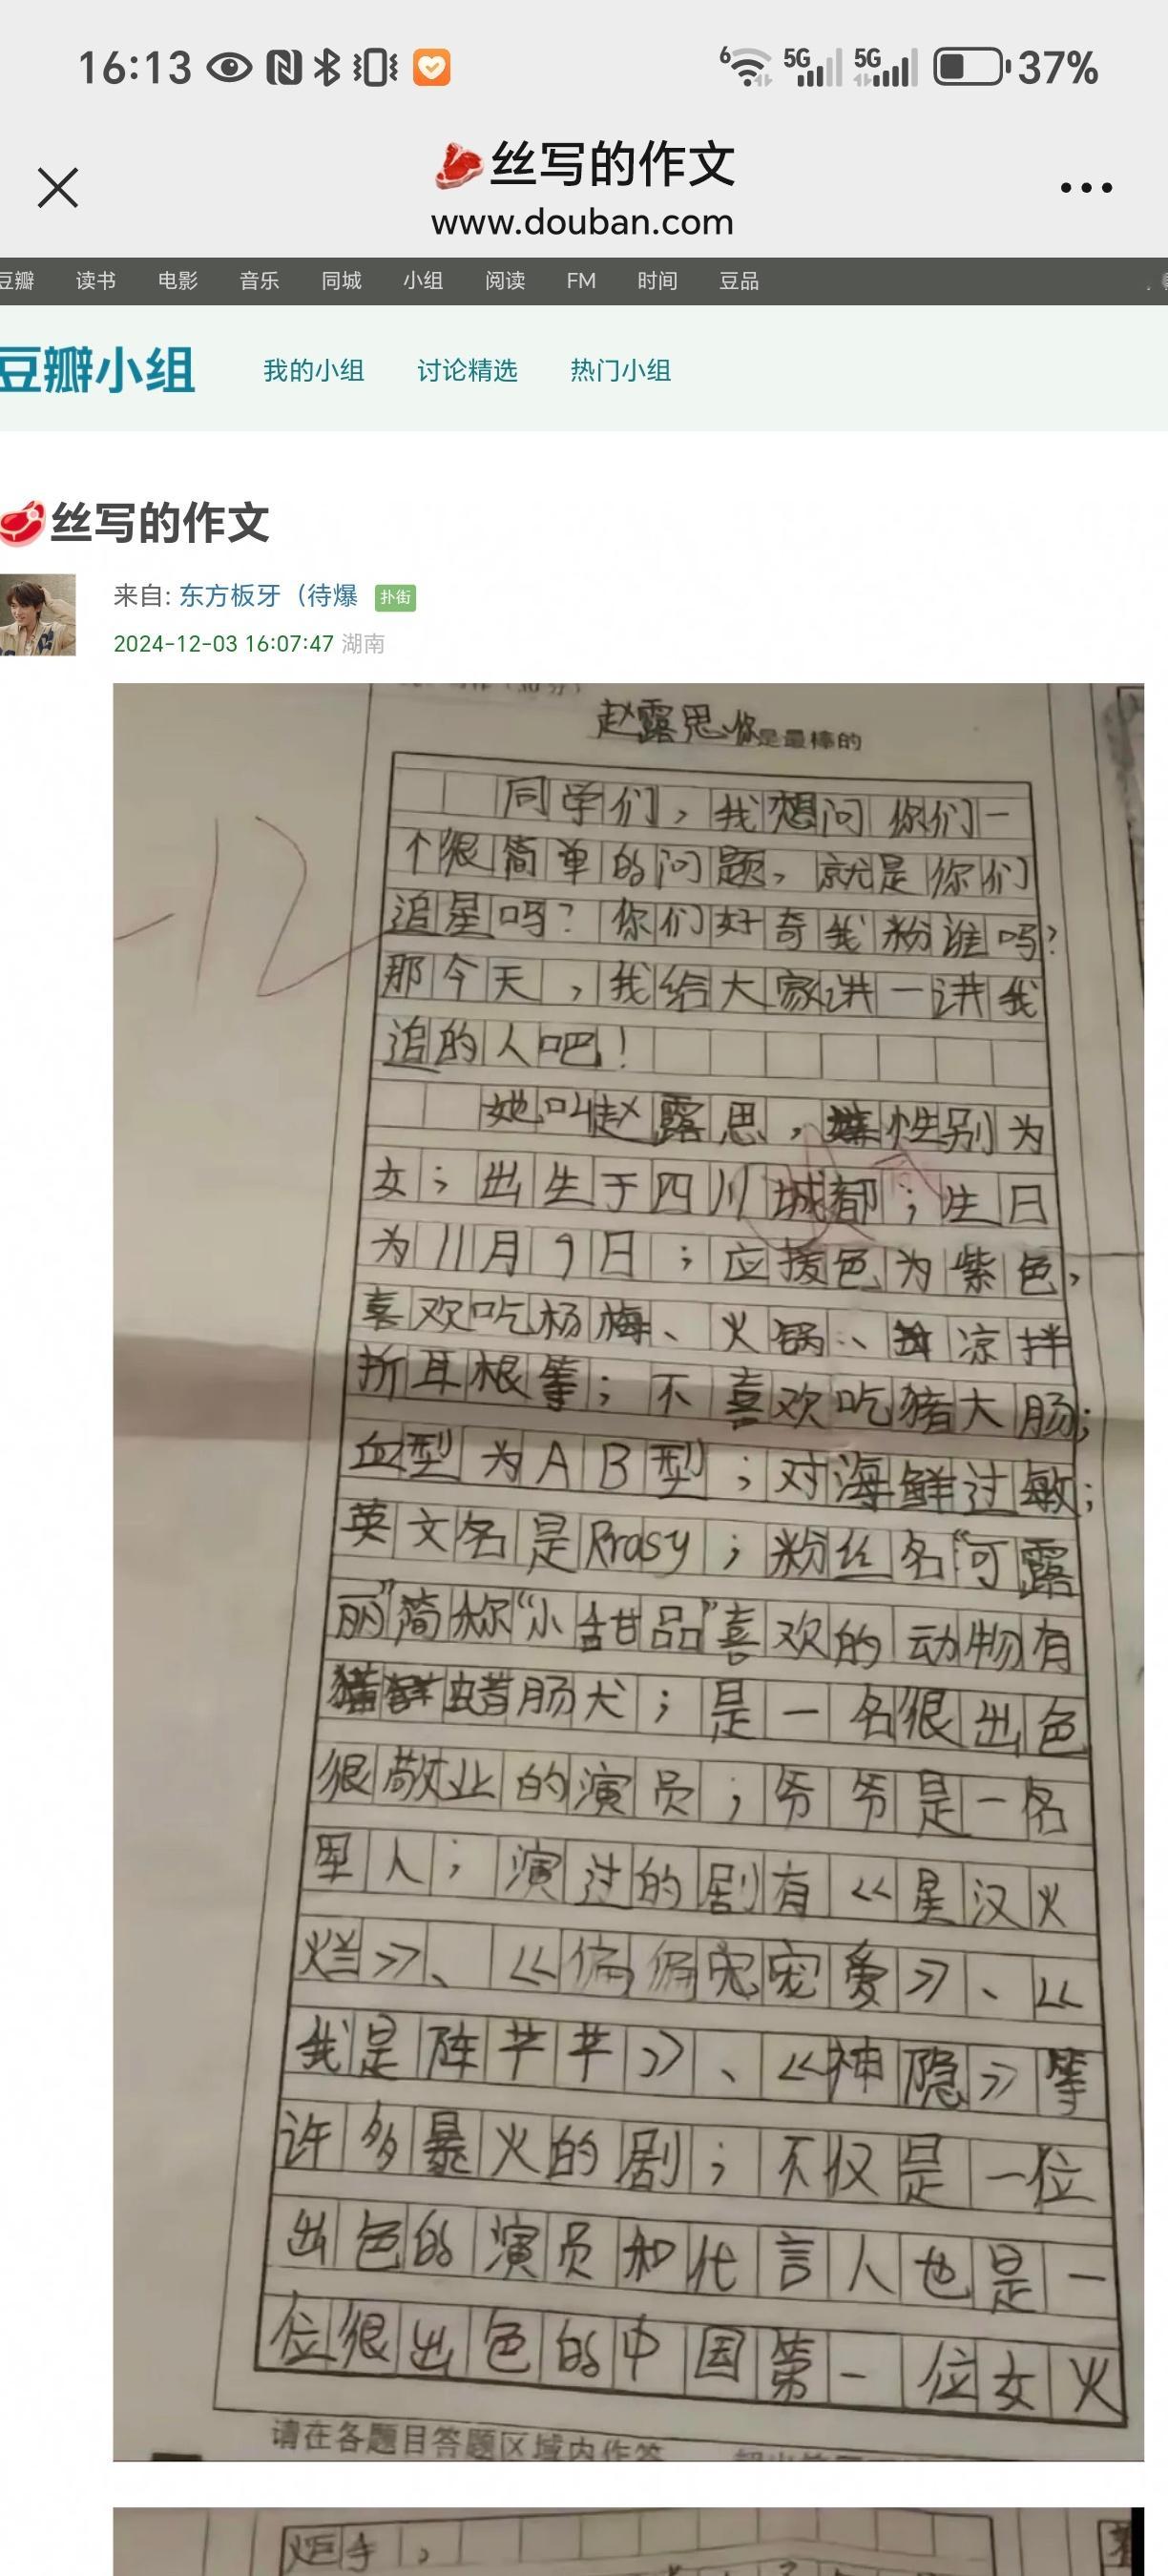 16:13 6 5G 5G 37%
丝写的作文
www.douban.com
豆瓣 读书 电影 音乐 同城 小组 阅读 FM 时间 豆品
豆瓣小组 我的小组 讨论精选 热门小组
丝写的作文
来自: 东方板牙（待爆 扑街
2024-12-03 16:07:47 湖南
赵露思你是最棒的
-12
同学们，我想问你们一
个很简单的问题，就是你们
追星吗？你们好奇我粉谁吗？
那今天，我给大家讲一讲我
追的人吧！
她叫赵露思，性别为
女；出生于四川城都；生日
为11月9日；应援色为紫色，
喜欢吃杨梅、火锅、凉拌
折耳根等；不喜欢吃猪大肠；
血型为AB型；对海鲜过敏；
英文名是Rrosy；粉丝名“可露
丽”简称“小甜品”喜欢的动物有
腊肠犬；是一名很出色
很敬业的演员；爷爷是一名
军人；演过的剧有《星汉火
烂》、《偏偏宠宠爱》、《
我是陈芊芊》、《神隐》等
许多暴火的剧；不仅是一位
出色的演员和代言人也是一
位很出色的中国第一位女火
请在各题目答题区域内作答
炬手，